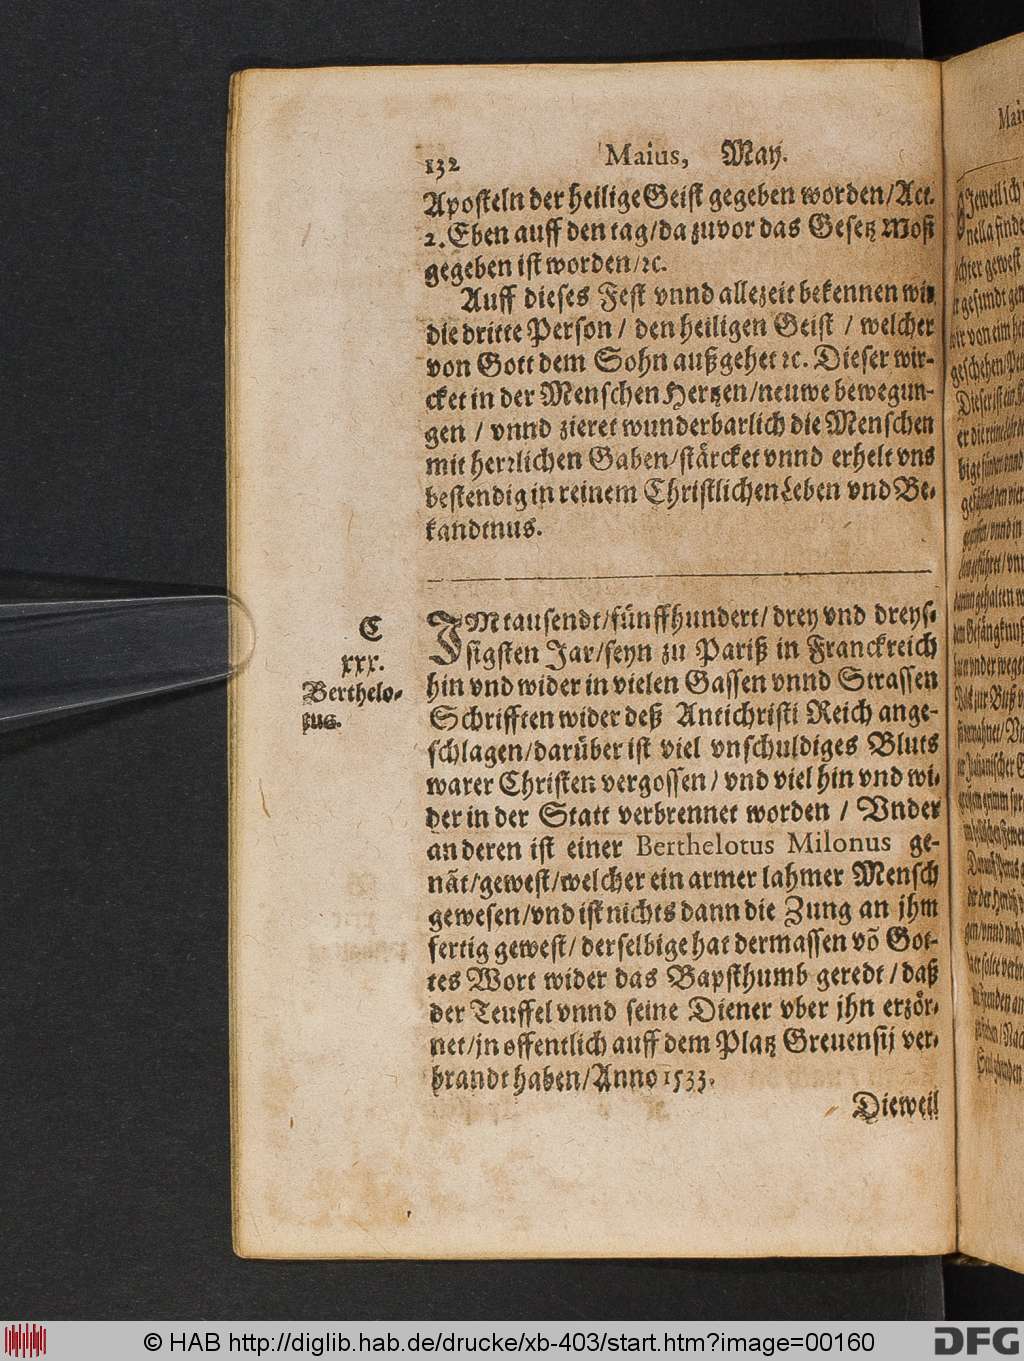 132 Maius, May.
Aposteln der heilige Geist gegeben worden/Act.
2. Eben auff den tag/da zuvor das Gesetz Mosi
gegeben ist worden/ꝛc.
Auff dieses Fest vnnd allezeit bekennen wir
die dritte Person / den heiligen Geist / welcher
von Gott dem Sohn außgehet ꝛc. Dieser wir-
cket in der Menschen Hertzen/neuwe bewegun-
gen / vnnd zieret wunderbarlich die Menschen
mit herrlichen Gaben/stärcket vnnd erhelt vns
bestendig in reinem Christlichen Leben vnd Be-
kandtnus.
C
xxx.
Berthelo-
tus.
IM tausendt/fünffhundert/drey vnd dreys-
sigsten Jar/seyn zu Pariß in Franckreich
hin vnd wider in vielen Gassen vnnd Strassen
Schrifften wider deß Antichristi Reich ange-
schlagen/darüber ist viel vnschuldiges Bluts
warer Christen vergossen/ vnd viel hin vnd wi-
der in der Statt verbrennet worden / Vnder
anderen ist einer Berthelotus Milonus ge-
nãt/gewest/welcher ein armer lahmer Mensch
gewesen/vnd ist nichts dann die Zung an jhm
fertig gewest/ derselbige hat dermassen võ Got-
tes Wort wider das Bapsthumb geredt /daß
der Teuffel vnnd seine Diener vber jhn erzör-
net/jn offentlich auff dem Platz Greuensij ver-
brandt haben/Anno 1533.
Dieweil
© HAB http://diglib.hab.de/drucke/xb-403/start.htm?image=00160
DFG